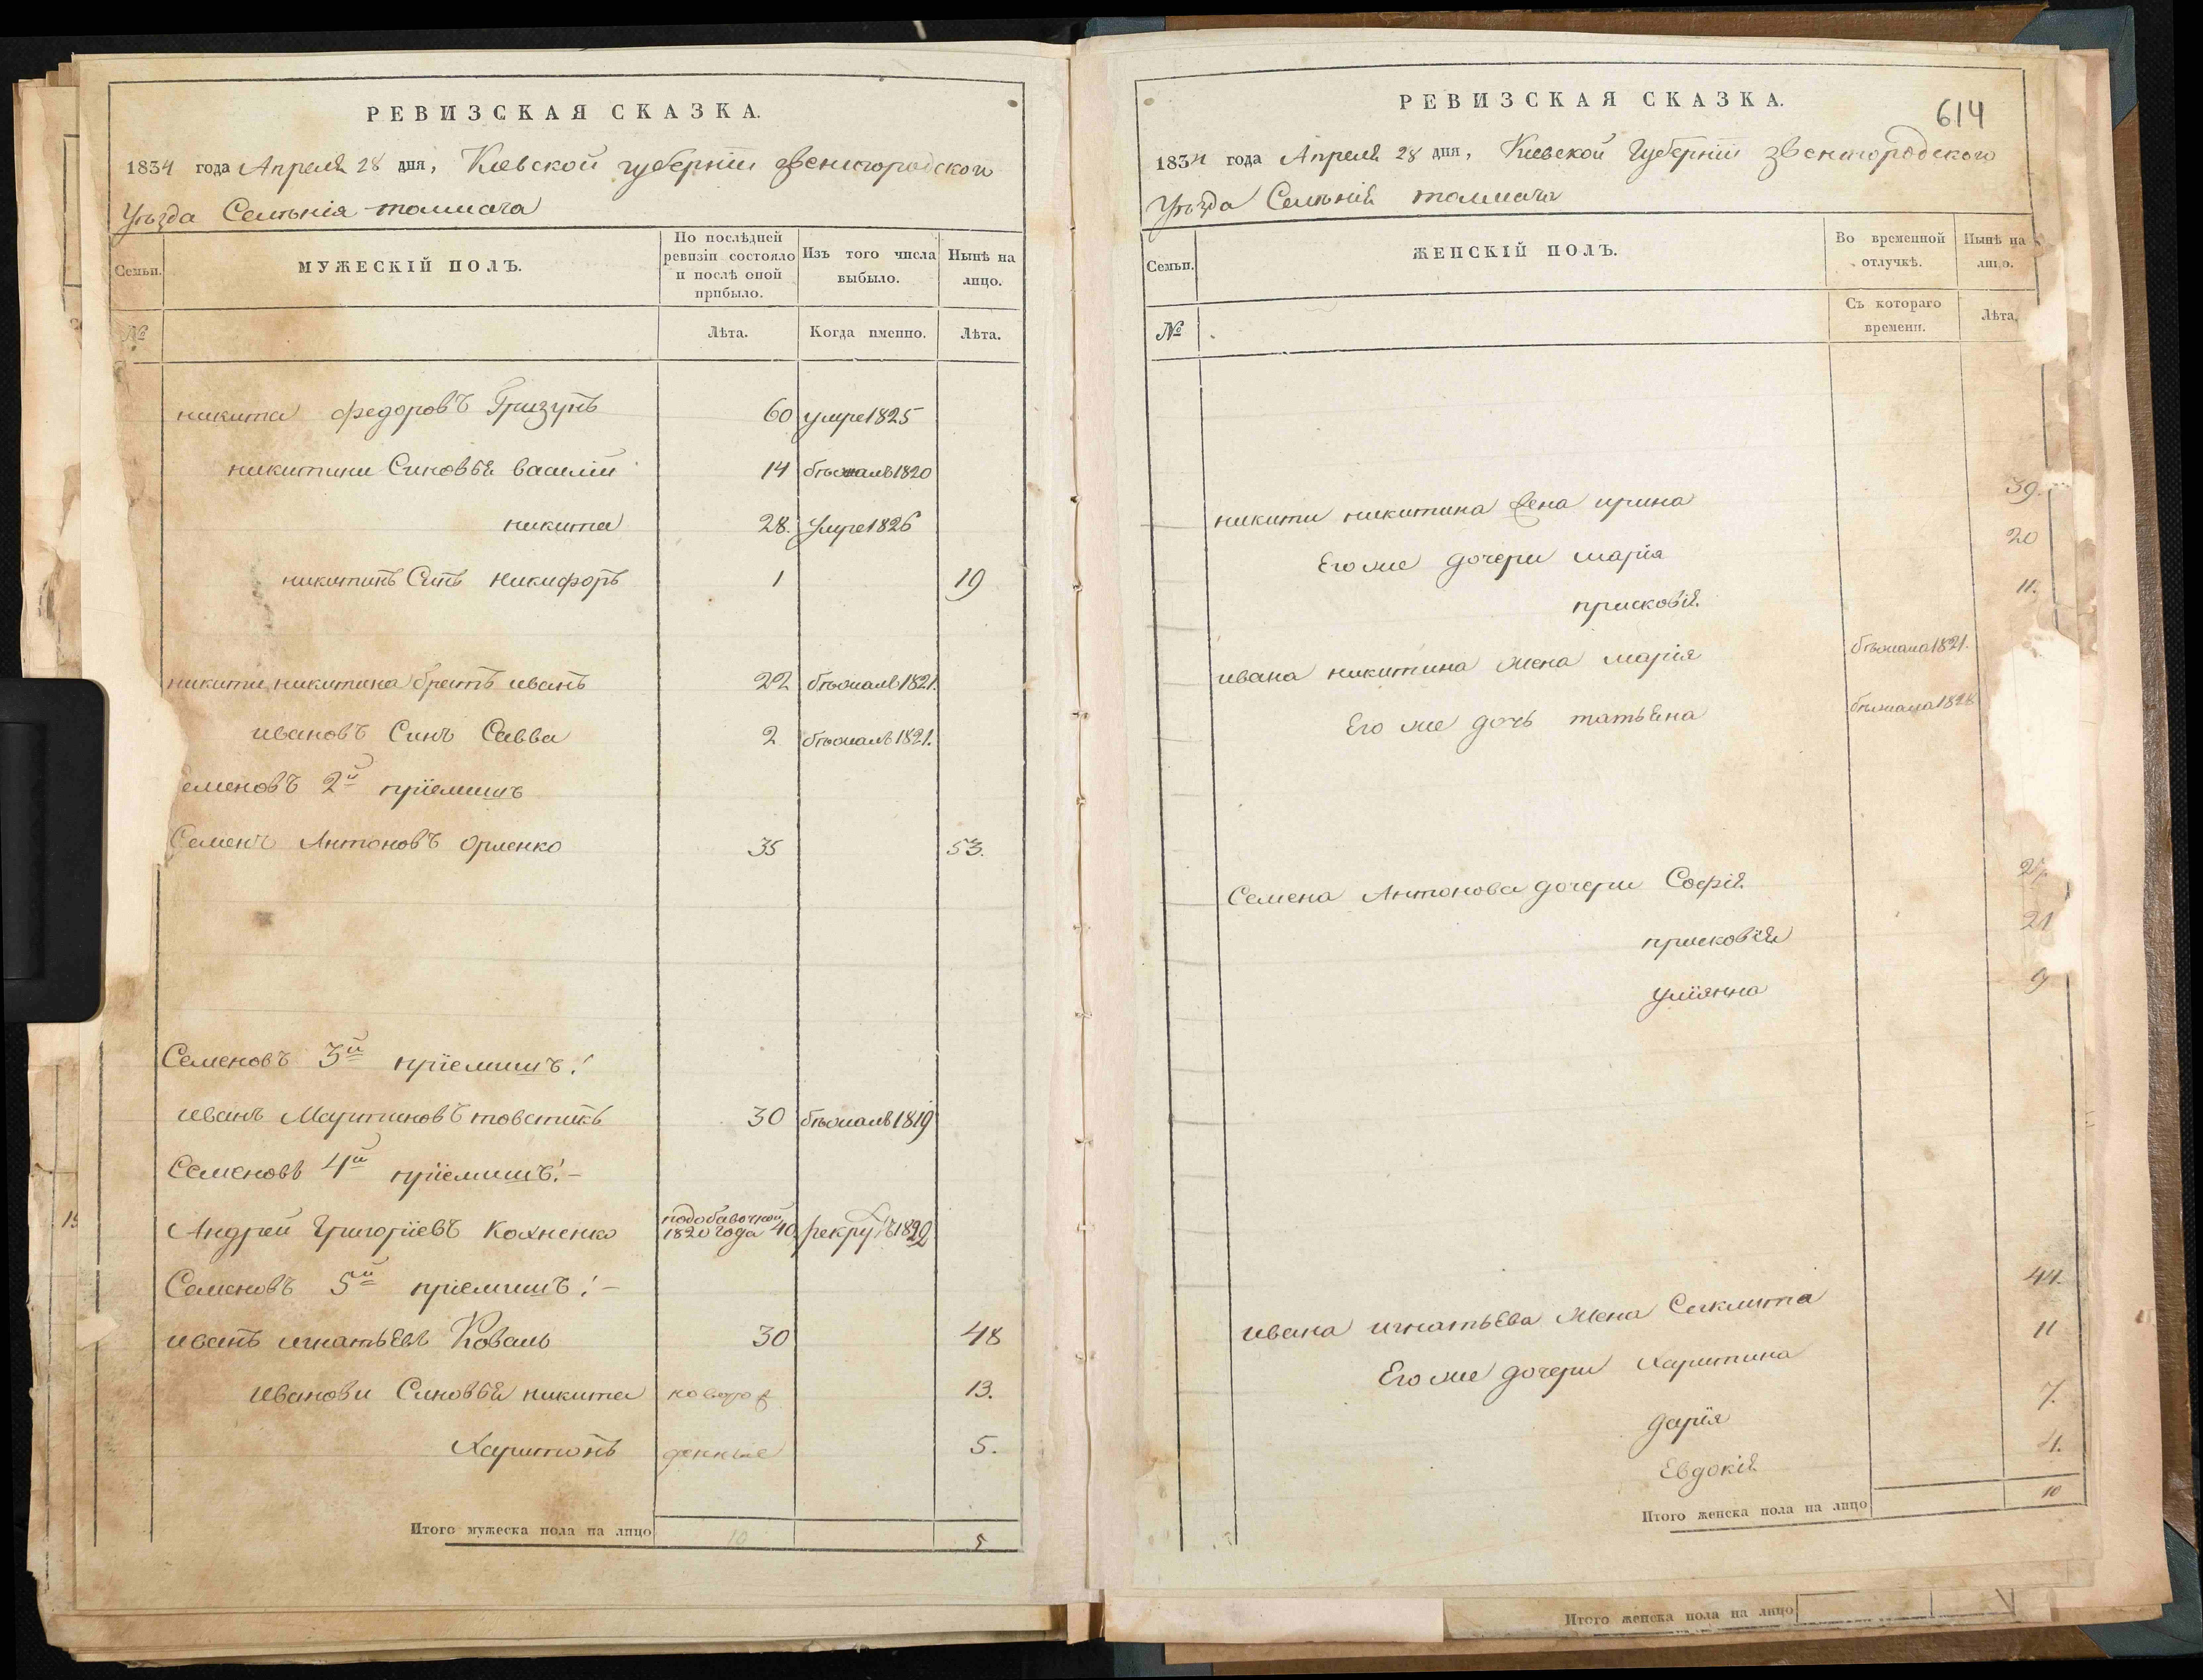 РЕВИЗСКАЯ СКАЗКА.
1834 года Апреля 28 дня, Киевской губернiи звенигородского
Уѣзда Селѣнiя толмача
Семьи.
МУЖЕСКIЙ ПОЛЪ.
По послѣдней ревизiи состояло и послѣ оной прибыло.
Изъ того числа выбыло.
Нынѣ на лицо.
№
Лѣта.
Когда именно.
Лѣта.
никита федоровъ Гризунъ 60 умре 1825
никитини Синовья василiй 14 бѣжалъ 1820
никита 28. Умре 1826
никитинъ Синъ никифоръ 1 19
никити никитина братъ иванъ 22 бѣжалъ 1821.
ивановъ Синъ Савва 2 бѣжалъ 1821.
еменовъ 2й прiемишъ
Семенъ Антоновъ орленко 35 53.
Семеновъ 3й прiемишъ!
иванъ Мартиновъ товстикъ 30 бѣжалъ 1819
Семеновъ 4й прiемишъ! -
Андрей Григорiевъ Кохненко подобавочной 1820 года 40. рекрутъ 1822
Семеновъ 5й прiемишъ! -
иванъ игнатьевъ Коваль 30 48
иванови Синовья никита новорож 13.
Харитонъ денные 5.
Итого мужеска пола на лицо 10 5
614
РЕВИЗСКАЯ СКАЗКА.
1834 года Апреля 28 дня, Киевской Губернiи звенигородского
Уѣзда Селѣнiя толмача
Семьи.
ЖЕНСКIЙ ПОЛЪ.
Во временной отлучкѣ.
Нынѣ на лицо.
№
Съ котораго времени.
Лѣта.
никити никитина жена ирина 39.
Его же дочери марiя 20
присковiя 11.
ивана никитина жена марiя бѣжала 1821.
Его же дочь татьяна бѣжала
Семена Антонова дочери Софiя
присковiя 21
улiянна
ивана игнатьева жена 44.
Его же дочери харитина 11
дарiя 7.
Евдокiя 4.
Итого женска пола на лицо 10
Итого женска пола на лицо